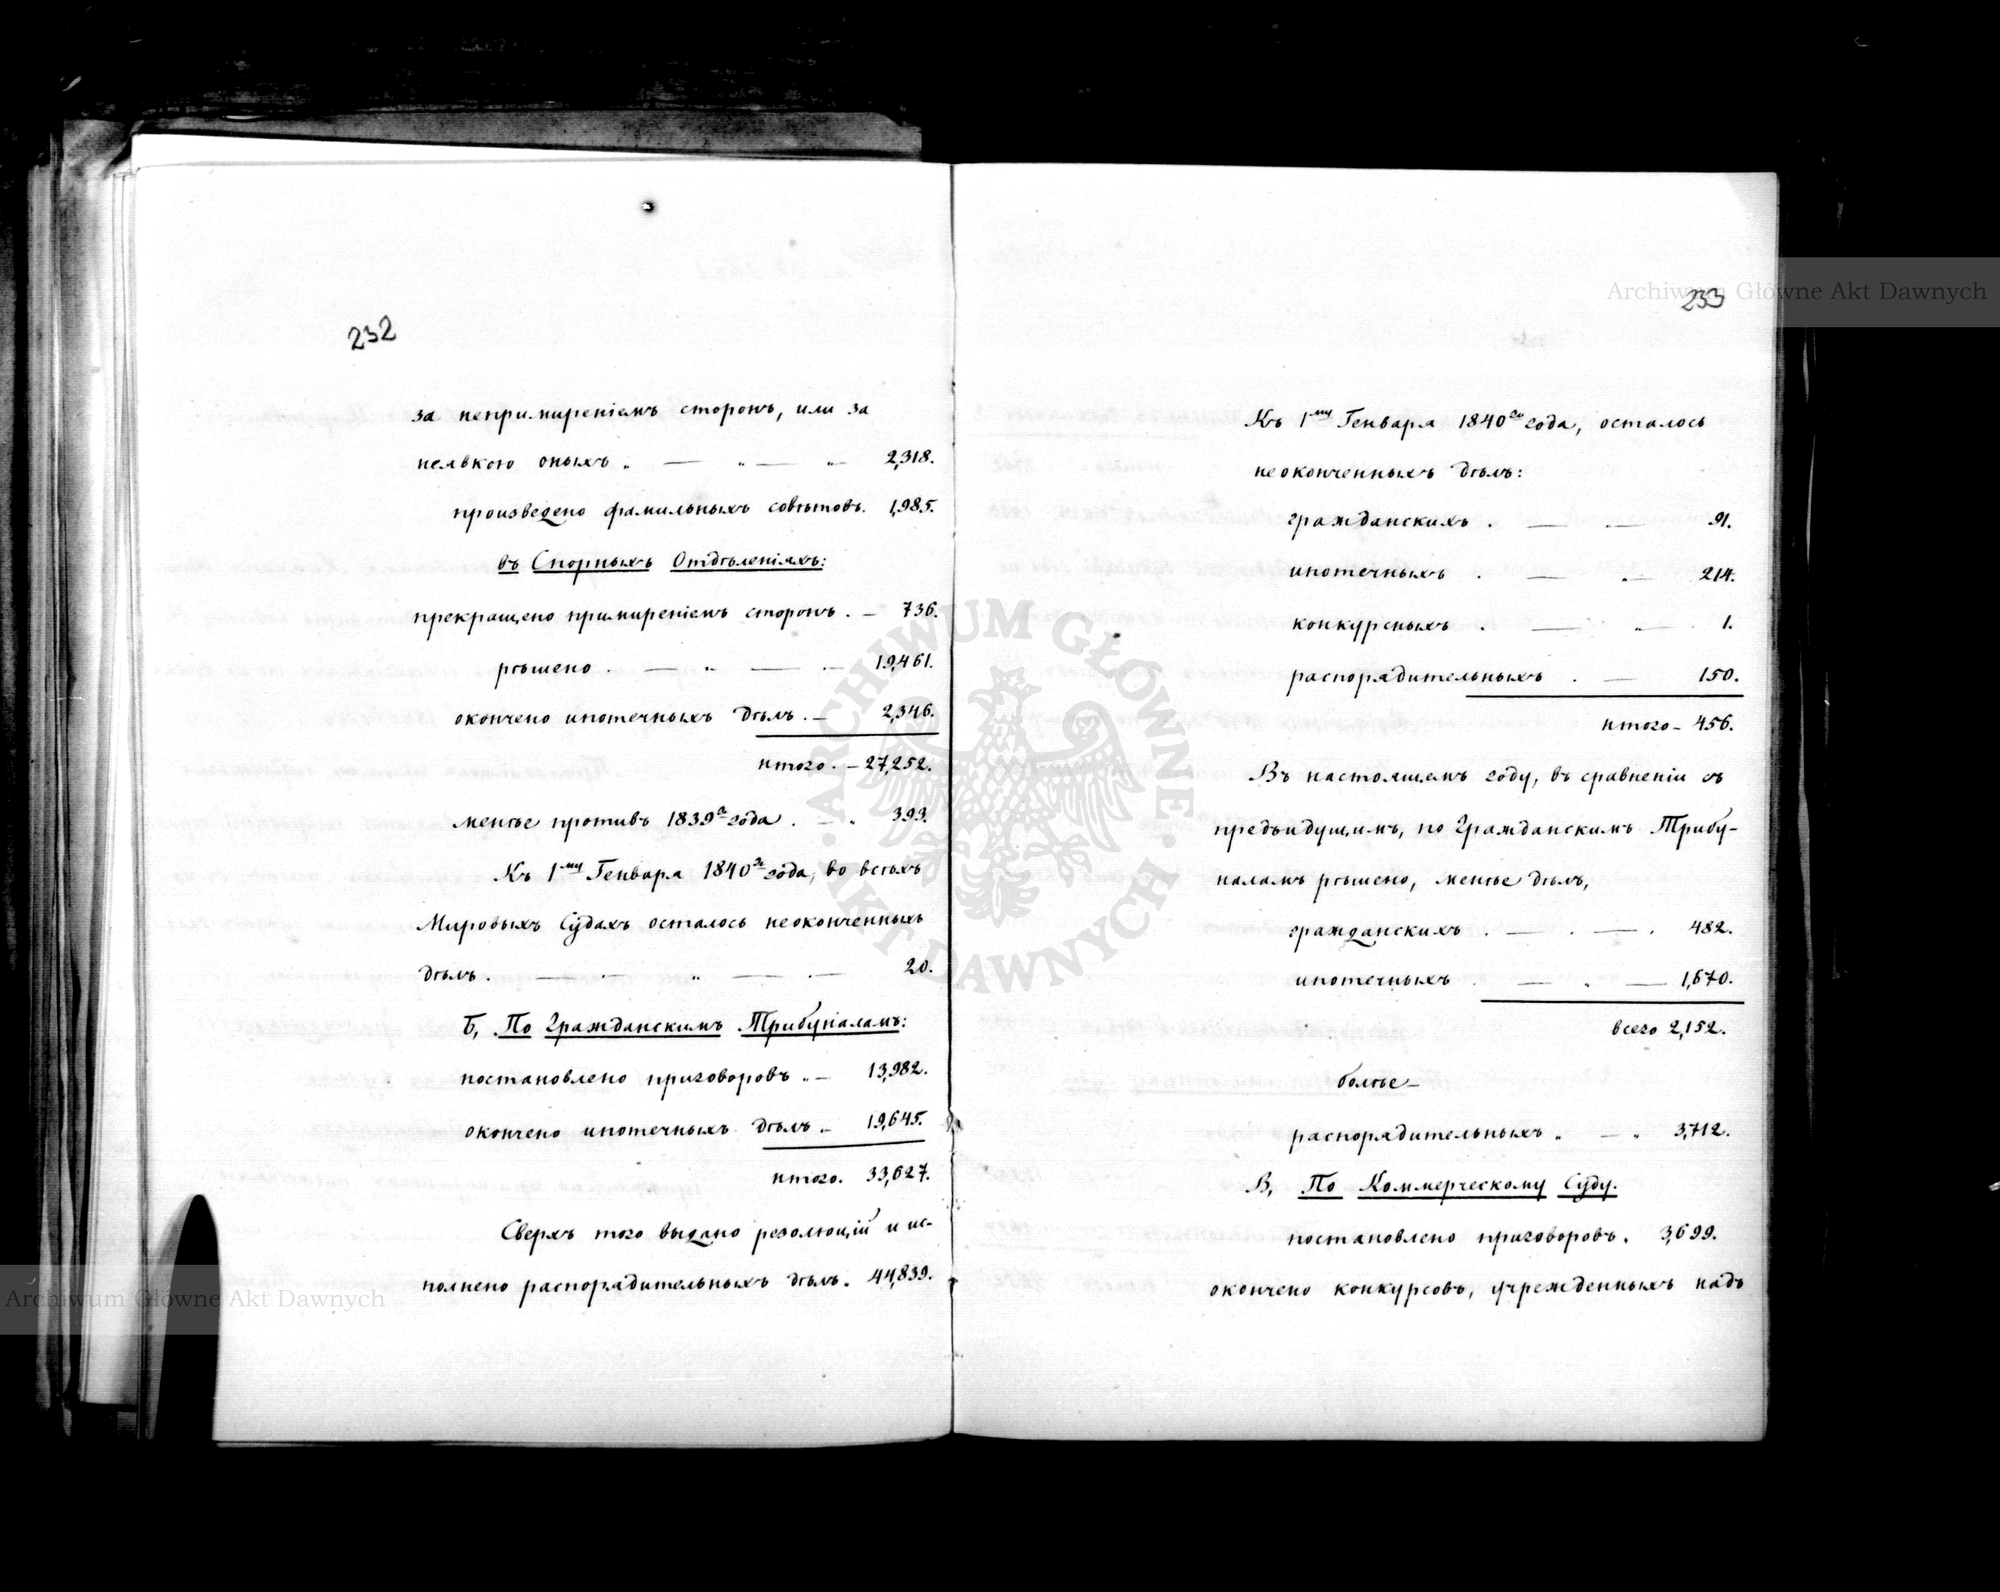 232
за непримиреніемъ сторонъ, или за
неявкою оныхъ „ — „ — „ 2,318.
произведено фамильныхъ совѣтовъ. 1,985.
въ Спорныхъ Отдѣленіяхъ:
прекращено примиреніемъ сторонъ. — 736.
рѣшено . — „ — „ 19,461.
окончено ипотечныхъ дѣлъ. — 2,346.
итого. — 27,252.
менѣе противъ 1839го года . — „ 393.
Къ 1му Генваря 1840го года, во всѣхъ
Мировыхъ Судахъ осталось неоконченныхъ
дѣлъ . — . — „ — . — 20.
Б, По Гражданскимъ Трибуналамъ:
постановлено приговоровъ „ — 13,982.
окончено ипотечныхъ дѣлъ „ — 19,645.
итого. 33,627.
Сверхъ того выдано резолюцій и ис-
полнено распорядительныхъ дѣлъ. 44,839.
233
Къ 1му Генваря 1840го года, осталось
неоконченныхъ дѣлъ:
гражданскихъ . — „ — 91.
ипотечныхъ . — „ — 214.
конкурсныхъ . — „ — 1.
распорядительныхъ . — 150.
итого — 456.
Въ настоящемъ году, въ сравненіи съ
предъидущимъ, по Гражданскимъ Трибу-
наламъ рѣшено, менѣе дѣлъ,
гражданскихъ . — . — . 482.
ипотечныхъ . — „ — 1,670.
всего 2,152.
болѣе —
распорядительныхъ „ — „ 3,712.
В, По Коммерческому Суду.
постановлено приговоровъ. 3,699.
окончено конкурсовъ, учрежденныхъ надъ
Archiwum Główne Akt Dawnych
Archiwum Główne Akt Dawnych
ARCHIWUM GŁÓWNE · AKT DAWNYCH ·